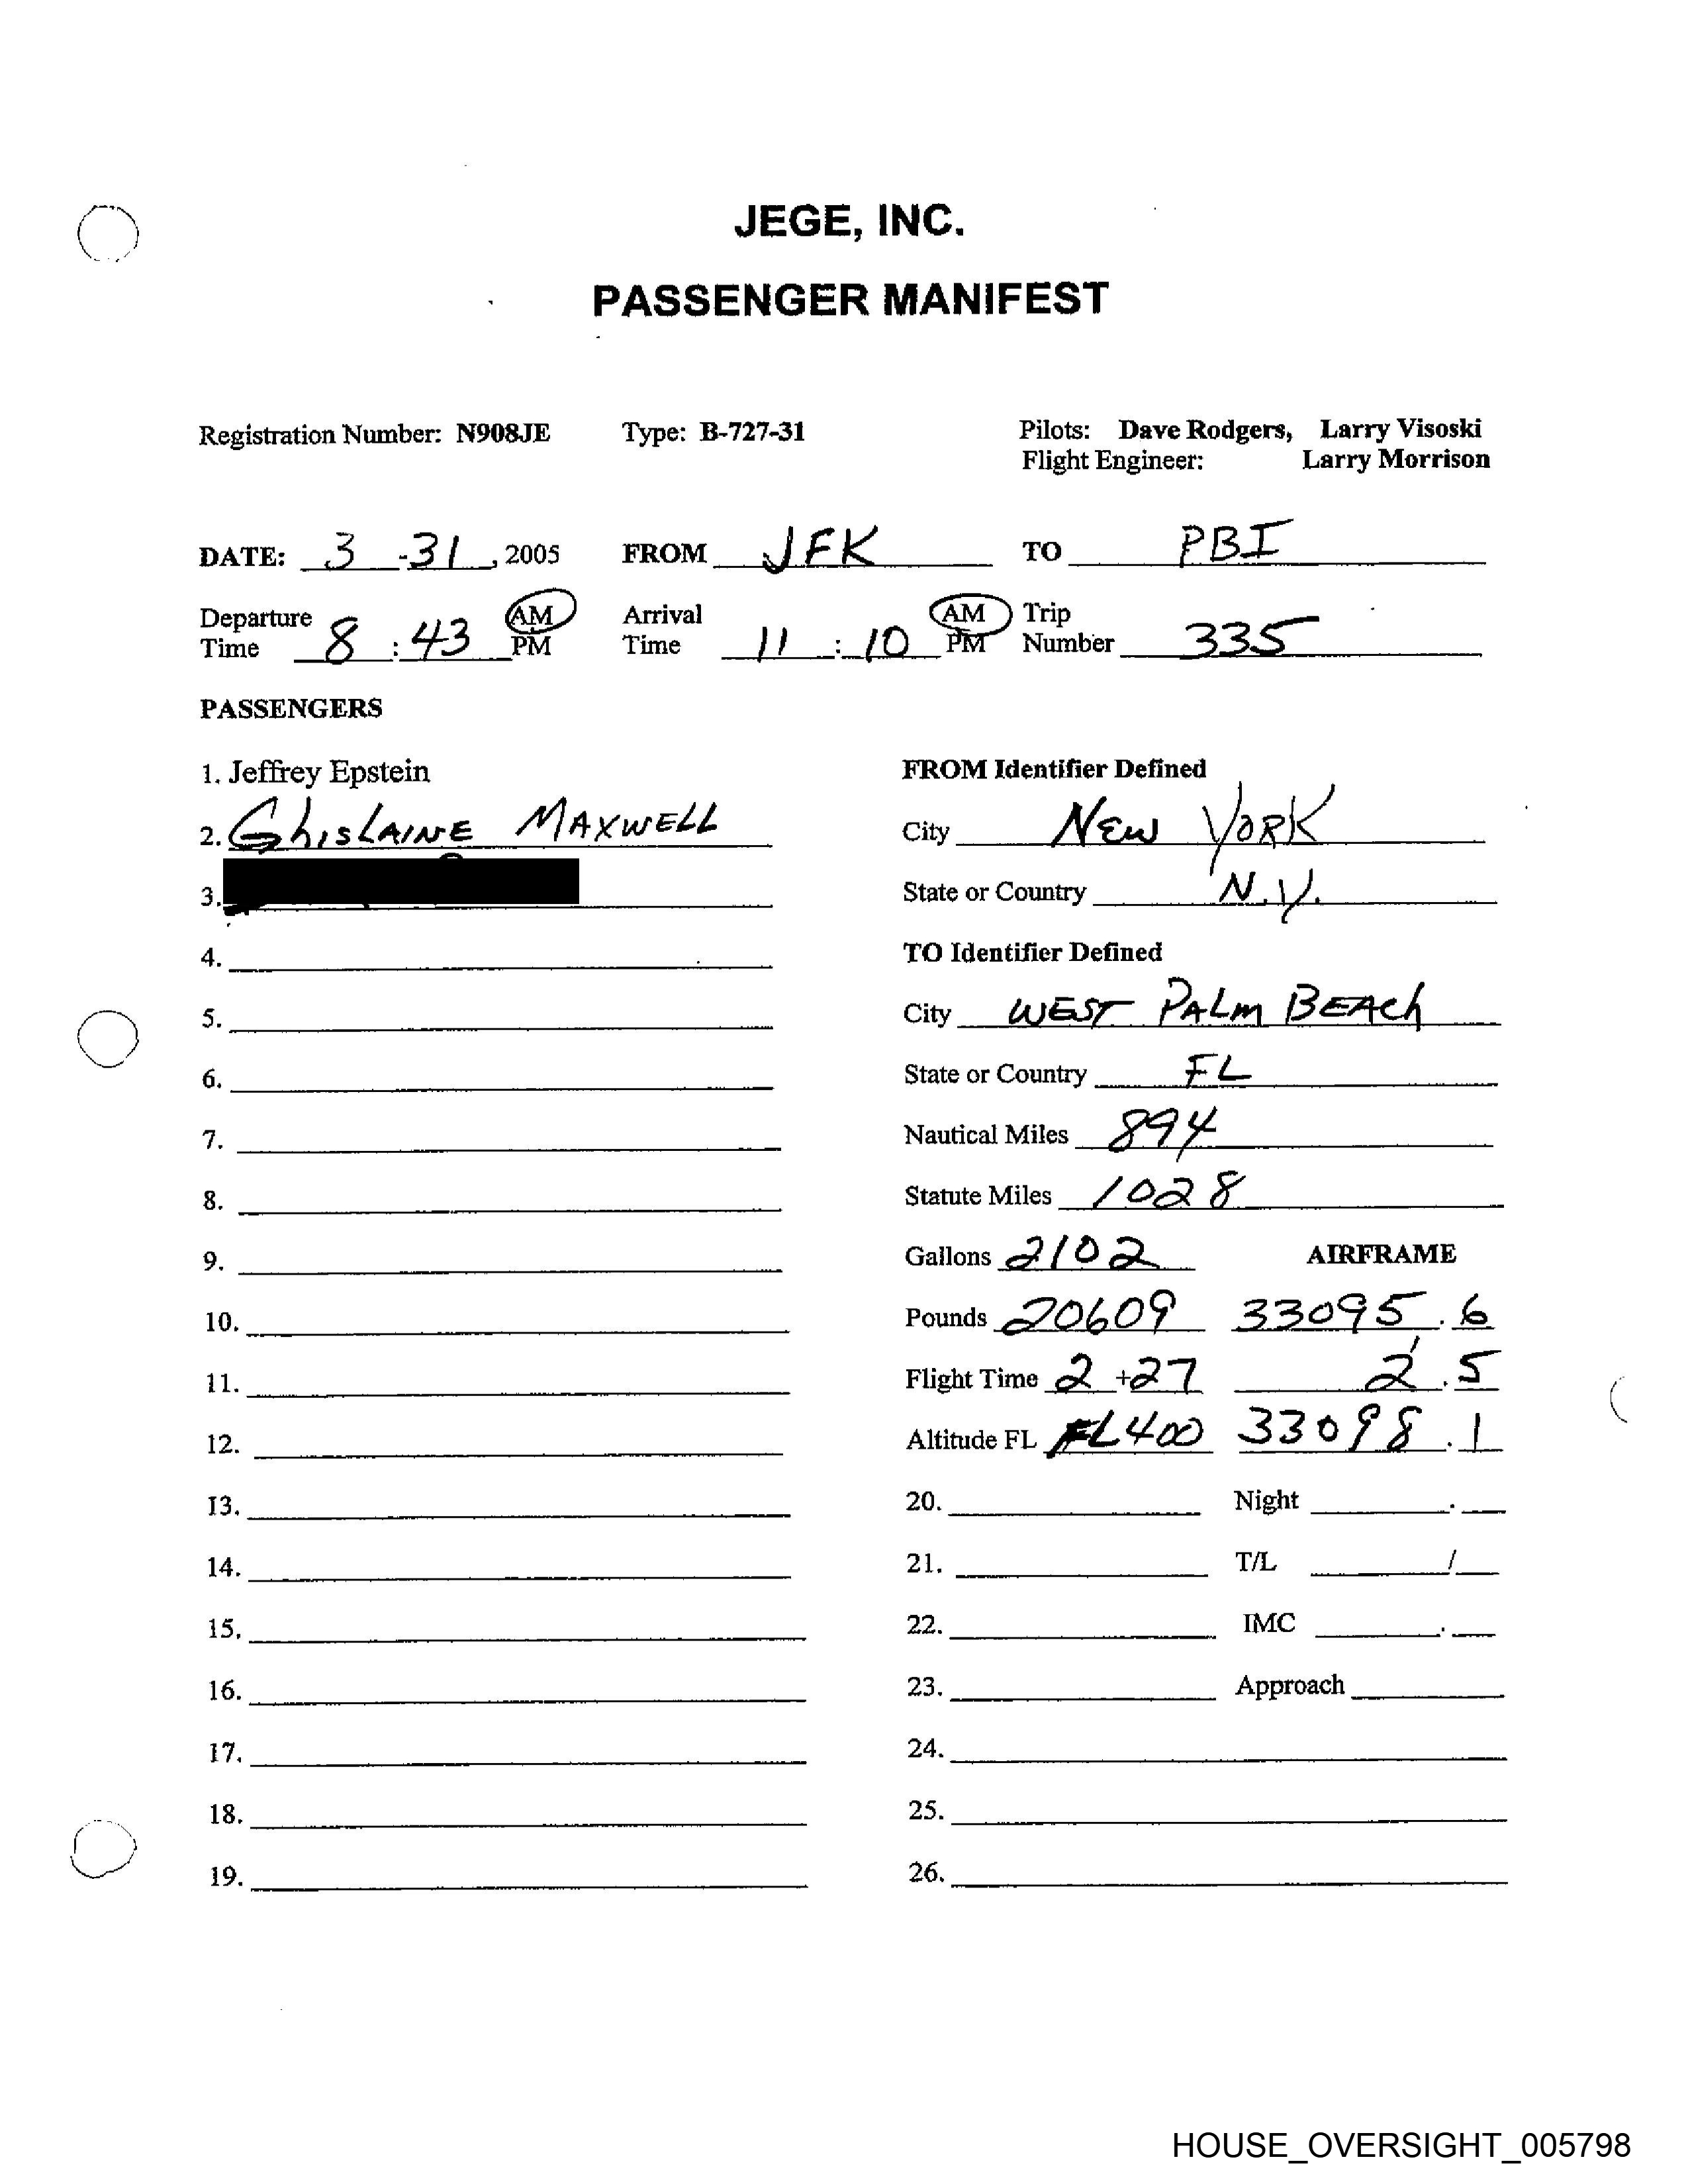 JEGE, INC.
PASSENGER MANIFEST
Registration Number: N908JE Type: B-727-31 Pilots: Dave Rodgers, Larry Visoski
Flight Engineer: Larry Morrison
DATE: 3 -31, 2005 FROM JFK TO PBI
Departure Time 8 : 43 AM PM Arrival Time 11 : 10 AM PM Trip Number 335
PASSENGERS
1. Jeffrey Epstein
2. GhisLAINE MAXWELL
3.
4.
5.
6.
7.
8.
9.
10.
11.
12.
13.
14.
15.
16.
17.
18.
19.
FROM Identifier Defined
City NEW YORK
State or Country N.Y.
TO Identifier Defined
City WEST PALM BEACh
State or Country FL
Nautical Miles 894
Statute Miles 1028
Gallons 2102 AIRFRAME
Pounds 20609 33095.6
Flight Time 2 +27 2.5
Altitude FL FL400 33098.1
20. Night .
21. T/L /
22. IMC .
23. Approach
24.
25.
26.
HOUSE_OVERSIGHT_005798